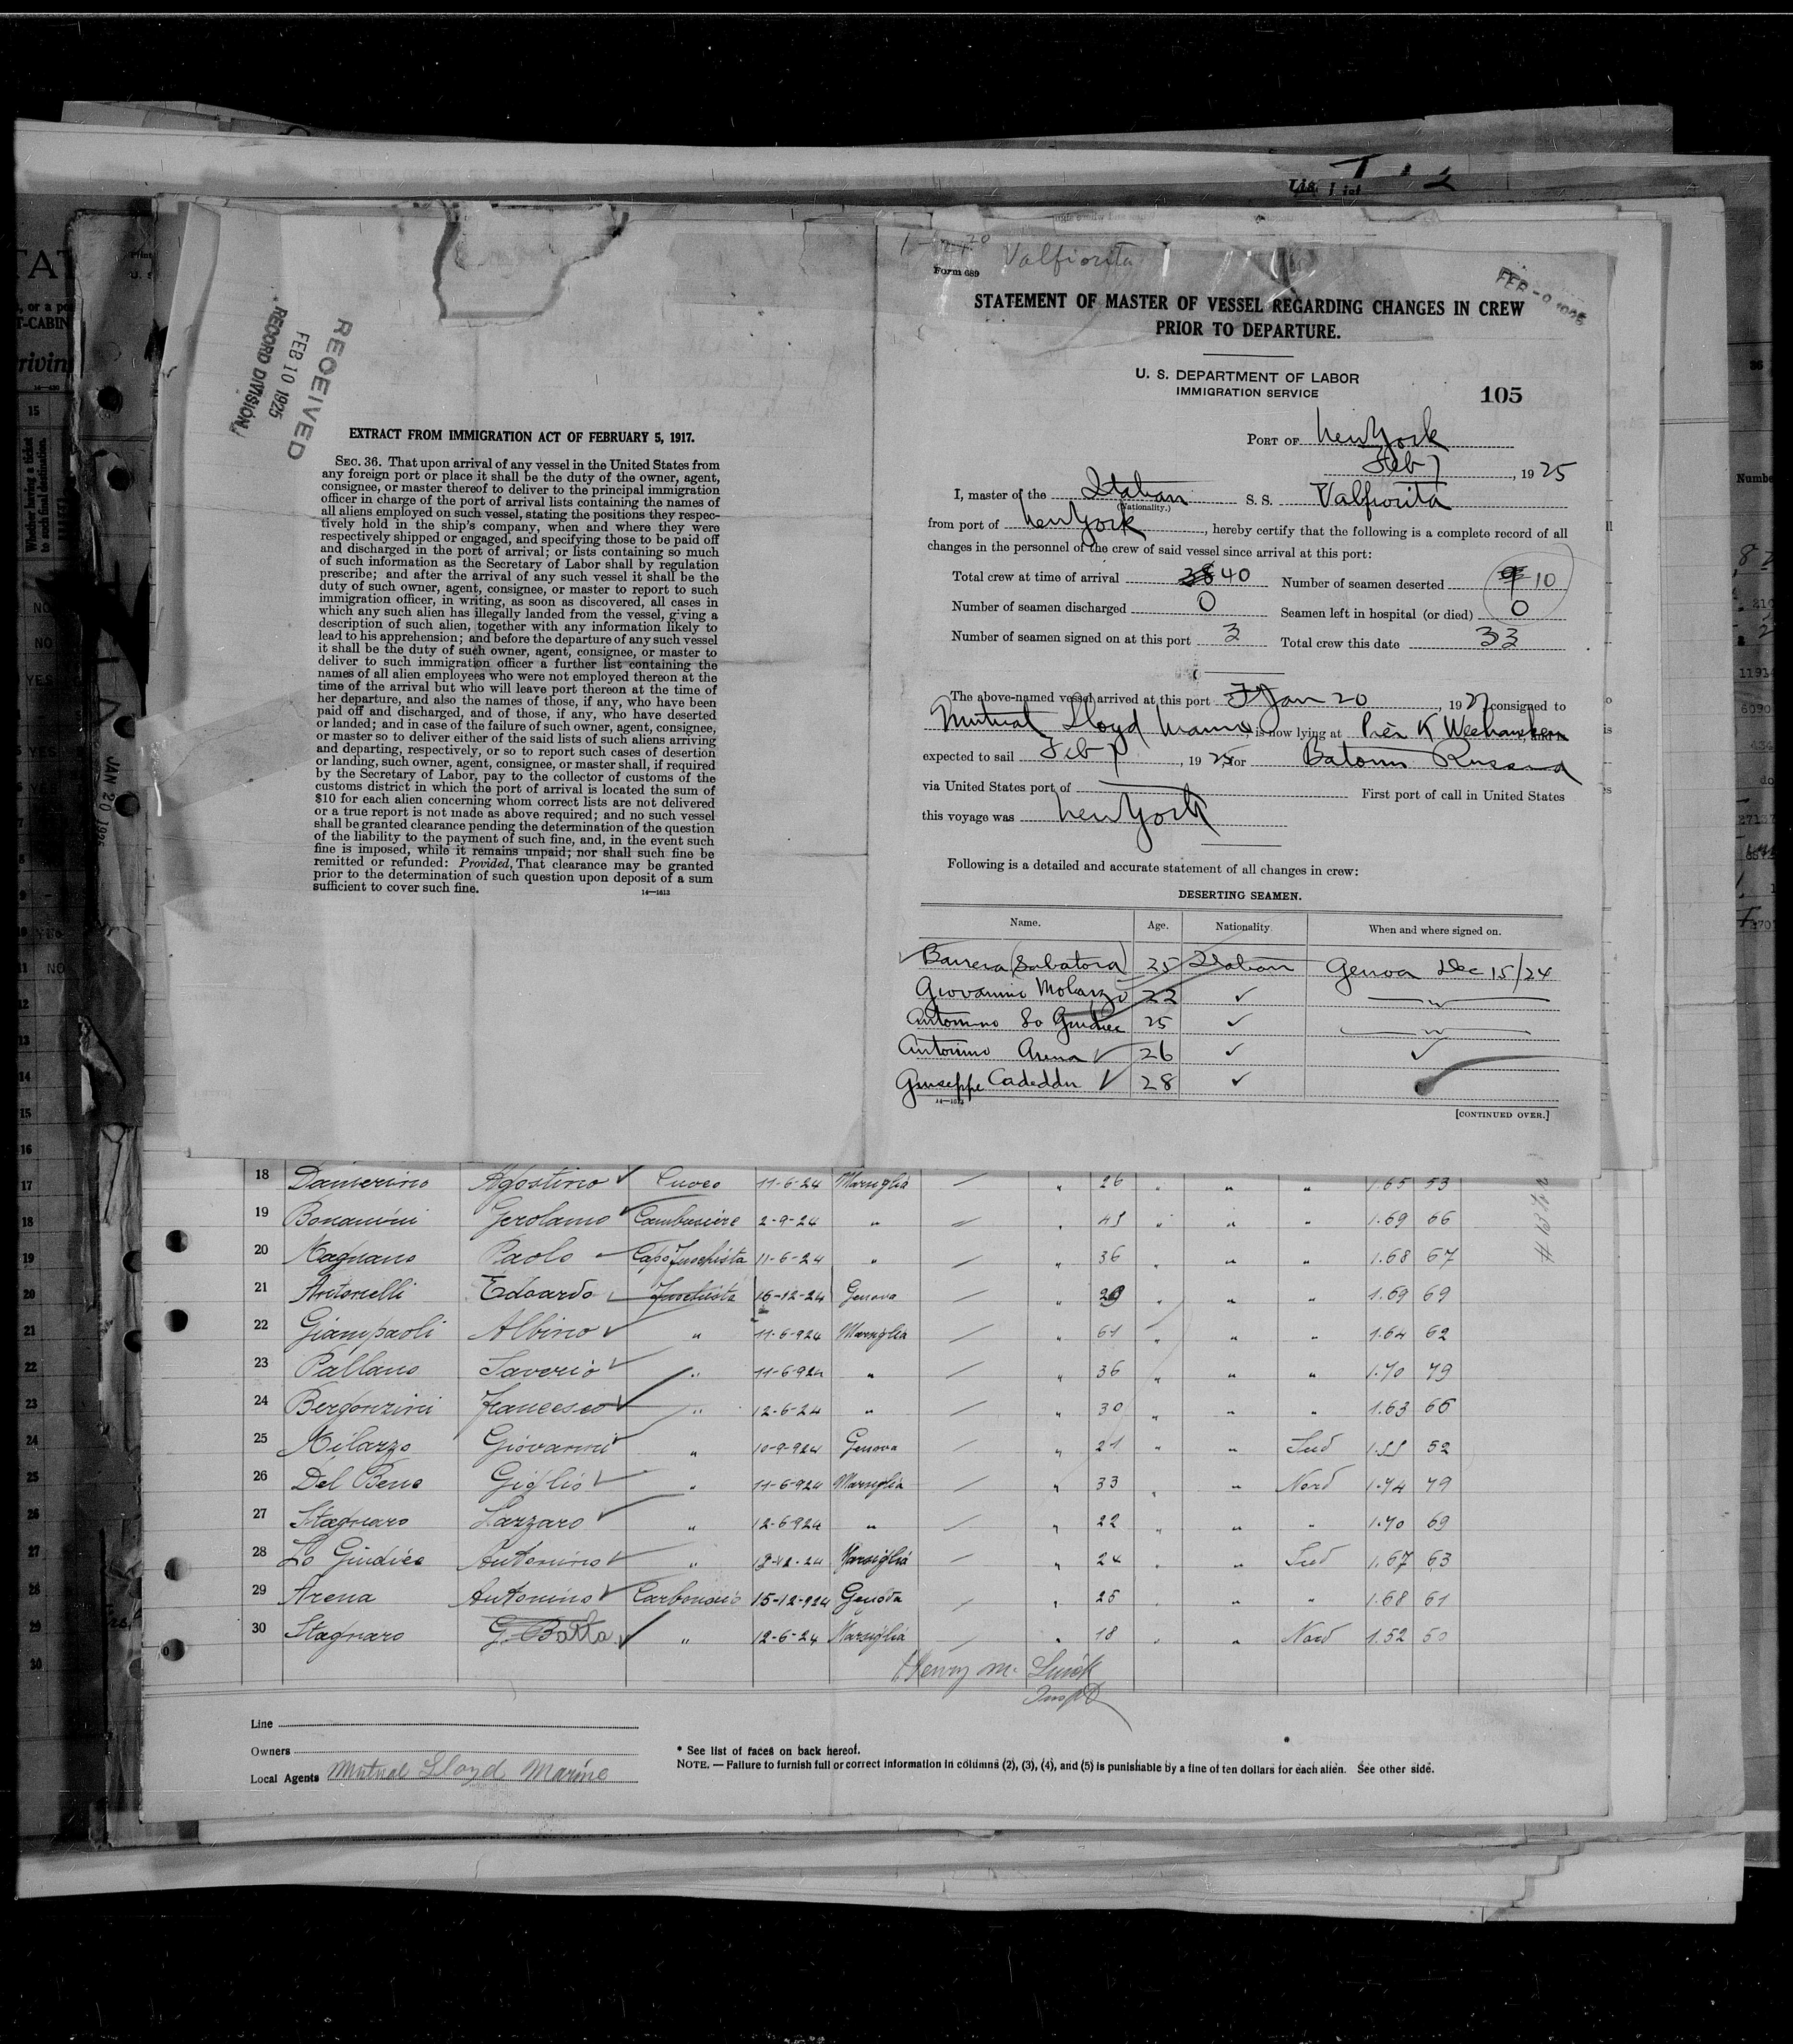 Valfiorita
Form 689
FEB
STATEMENT OF MASTER OF VESSEL REGARDING CHANGES IN CREW
PRIOR TO DEPARTURE.
U. S. DEPARTMENT OF LABOR
IMMIGRATION SERVICE
105
PORT OF New York
Feb 7, 1925
I, master of the Italian S. S. Valfiorita
(Nationality.)
from port of New York, hereby certify that the following is a complete record of all
changes in the personnel of the crew of said vessel since arrival at this port:
Total crew at time of arrival 38 40 Number of seamen deserted 9 10
Number of seamen discharged 0 Seamen left in hospital (or died) 0
Number of seamen signed on at this port 3 Total crew this date 33
The above-named vessel arrived at this port Jan 20, 192 consigned to
Mutual Lloyd is now lying at Pier K Weehawken, and is
expected to sail Feb 7, 1925 for Batoum
via United States port of First port of call in United States
this voyage was New York
Following is a detailed and accurate statement of all changes in crew:
DESERTING SEAMEN.
Name. Age. Nationality When and where signed on.
Barrera (Salvatora) 25 Italian Genoa Dec 15/24
Giovanni 22 ✓ "
Antonino Lo Giudice 25 ✓ "
Antonino Arena ✓ 26 ✓ ✓
Giuseppe Cadeddu ✓ 28 ✓
14—1613
[CONTINUED OVER.]
RECEIVED
FEB 10 1925
RECORD DIVISION
EXTRACT FROM IMMIGRATION ACT OF FEBRUARY 5, 1917.
SEC. 36. That upon arrival of any vessel in the United States from
any foreign port or place it shall be the duty of the owner, agent,
consignee, or master thereof to deliver to the principal immigration
officer in charge of the port of arrival lists containing the names of
all aliens employed on such vessel, stating the positions they respec-
tively hold in the ship's company, when and where they were
respectively shipped or engaged, and specifying those to be paid off
and discharged in the port of arrival; or lists containing so much
of such information as the Secretary of Labor shall by regulation
prescribe; and after the arrival of any such vessel it shall be the
duty of such owner, agent, consignee, or master to report to such
immigration officer, in writing, as soon as discovered, all cases in
which any such alien has illegally landed from the vessel, giving a
description of such alien, together with any information likely to
lead to his apprehension; and before the departure of any such vessel
it shall be the duty of such owner, agent, consignee, or master to
deliver to such immigration officer a further list containing the
names of all alien employees who were not employed thereon at the
time of the arrival but who will leave port thereon at the time of
her departure, and also the names of those, if any, who have been
paid off and discharged, and of those, if any, who have deserted
or landed; and in case of the failure of such owner, agent, consignee,
or master so to deliver either of the said lists of such aliens arriving
and departing, respectively, or so to report such cases of desertion
or landing, such owner, agent, consignee, or master shall, if required
by the Secretary of Labor, pay to the collector of customs of the
customs district in which the port of arrival is located the sum of
$10 for each alien concerning whom correct lists are not delivered
or a true report is not made as above required; and no such vessel
shall be granted clearance pending the determination of the question
of the liability to the payment of such fine, and, in the event such
fine is imposed, while it remains unpaid; nor shall such fine be
remitted or refunded: Provided, That clearance may be granted
prior to the determination of such question upon deposit of a sum
sufficient to cover such fine.
14—1613
JAN 20 1925
18 Agostino ✓ Cuoco 11-6-24 Marsiglia 26 " " 1.65 53
19 Bonanini Gerolamo Cambusiere 2-9-24 " " " " 1.69 66
20 Magnano Paolo Capo Fuochista 11-6-24 " 36 " " 1.68 67
21 Antonelli Edoardo Fuochista 16-12-24 Genova " " 1.69 69
22 Giampaoli Albino ✓ " 11-6-924 Marsiglia 61 " " 1.64 62
23 Pallano Saverio ✓ " 11-6-924 " 36 " " 1.70 79
24 Bergonzini Francesco ✓ " 12-6-24 " 30 " " 1.63 66
25 Milazzo Giovanni ✓ " 10-9-924 Genova 21 " Sud 1.55 52
26 Del Bene Giglio ✓ " 11-6-924 Marsiglia 33 " Nord 1.74 79
27 Stagnaro Lazzaro ✓ " 12-6-924 " 22 " " 1.70 69
28 Lo Giudice Antonino ✓ " Marsiglia 24 " Sud 1.67 63
29 Arena Antonino ✓ 15-12-924 Genova 25 " " 1.68 61
30 Stagnaro G. Batta ✓ " 12-6-24 Marsiglia 18 " Nord 1.52 50
Henry M.
Insp
Line
Owners
Local Agents Mutual Lloyd Marine
* See list of races on back hereof.
NOTE. — Failure to furnish full or correct information in columns (2), (3), (4), and (5) is punishable by a fine of ten dollars for each alien. See other side.